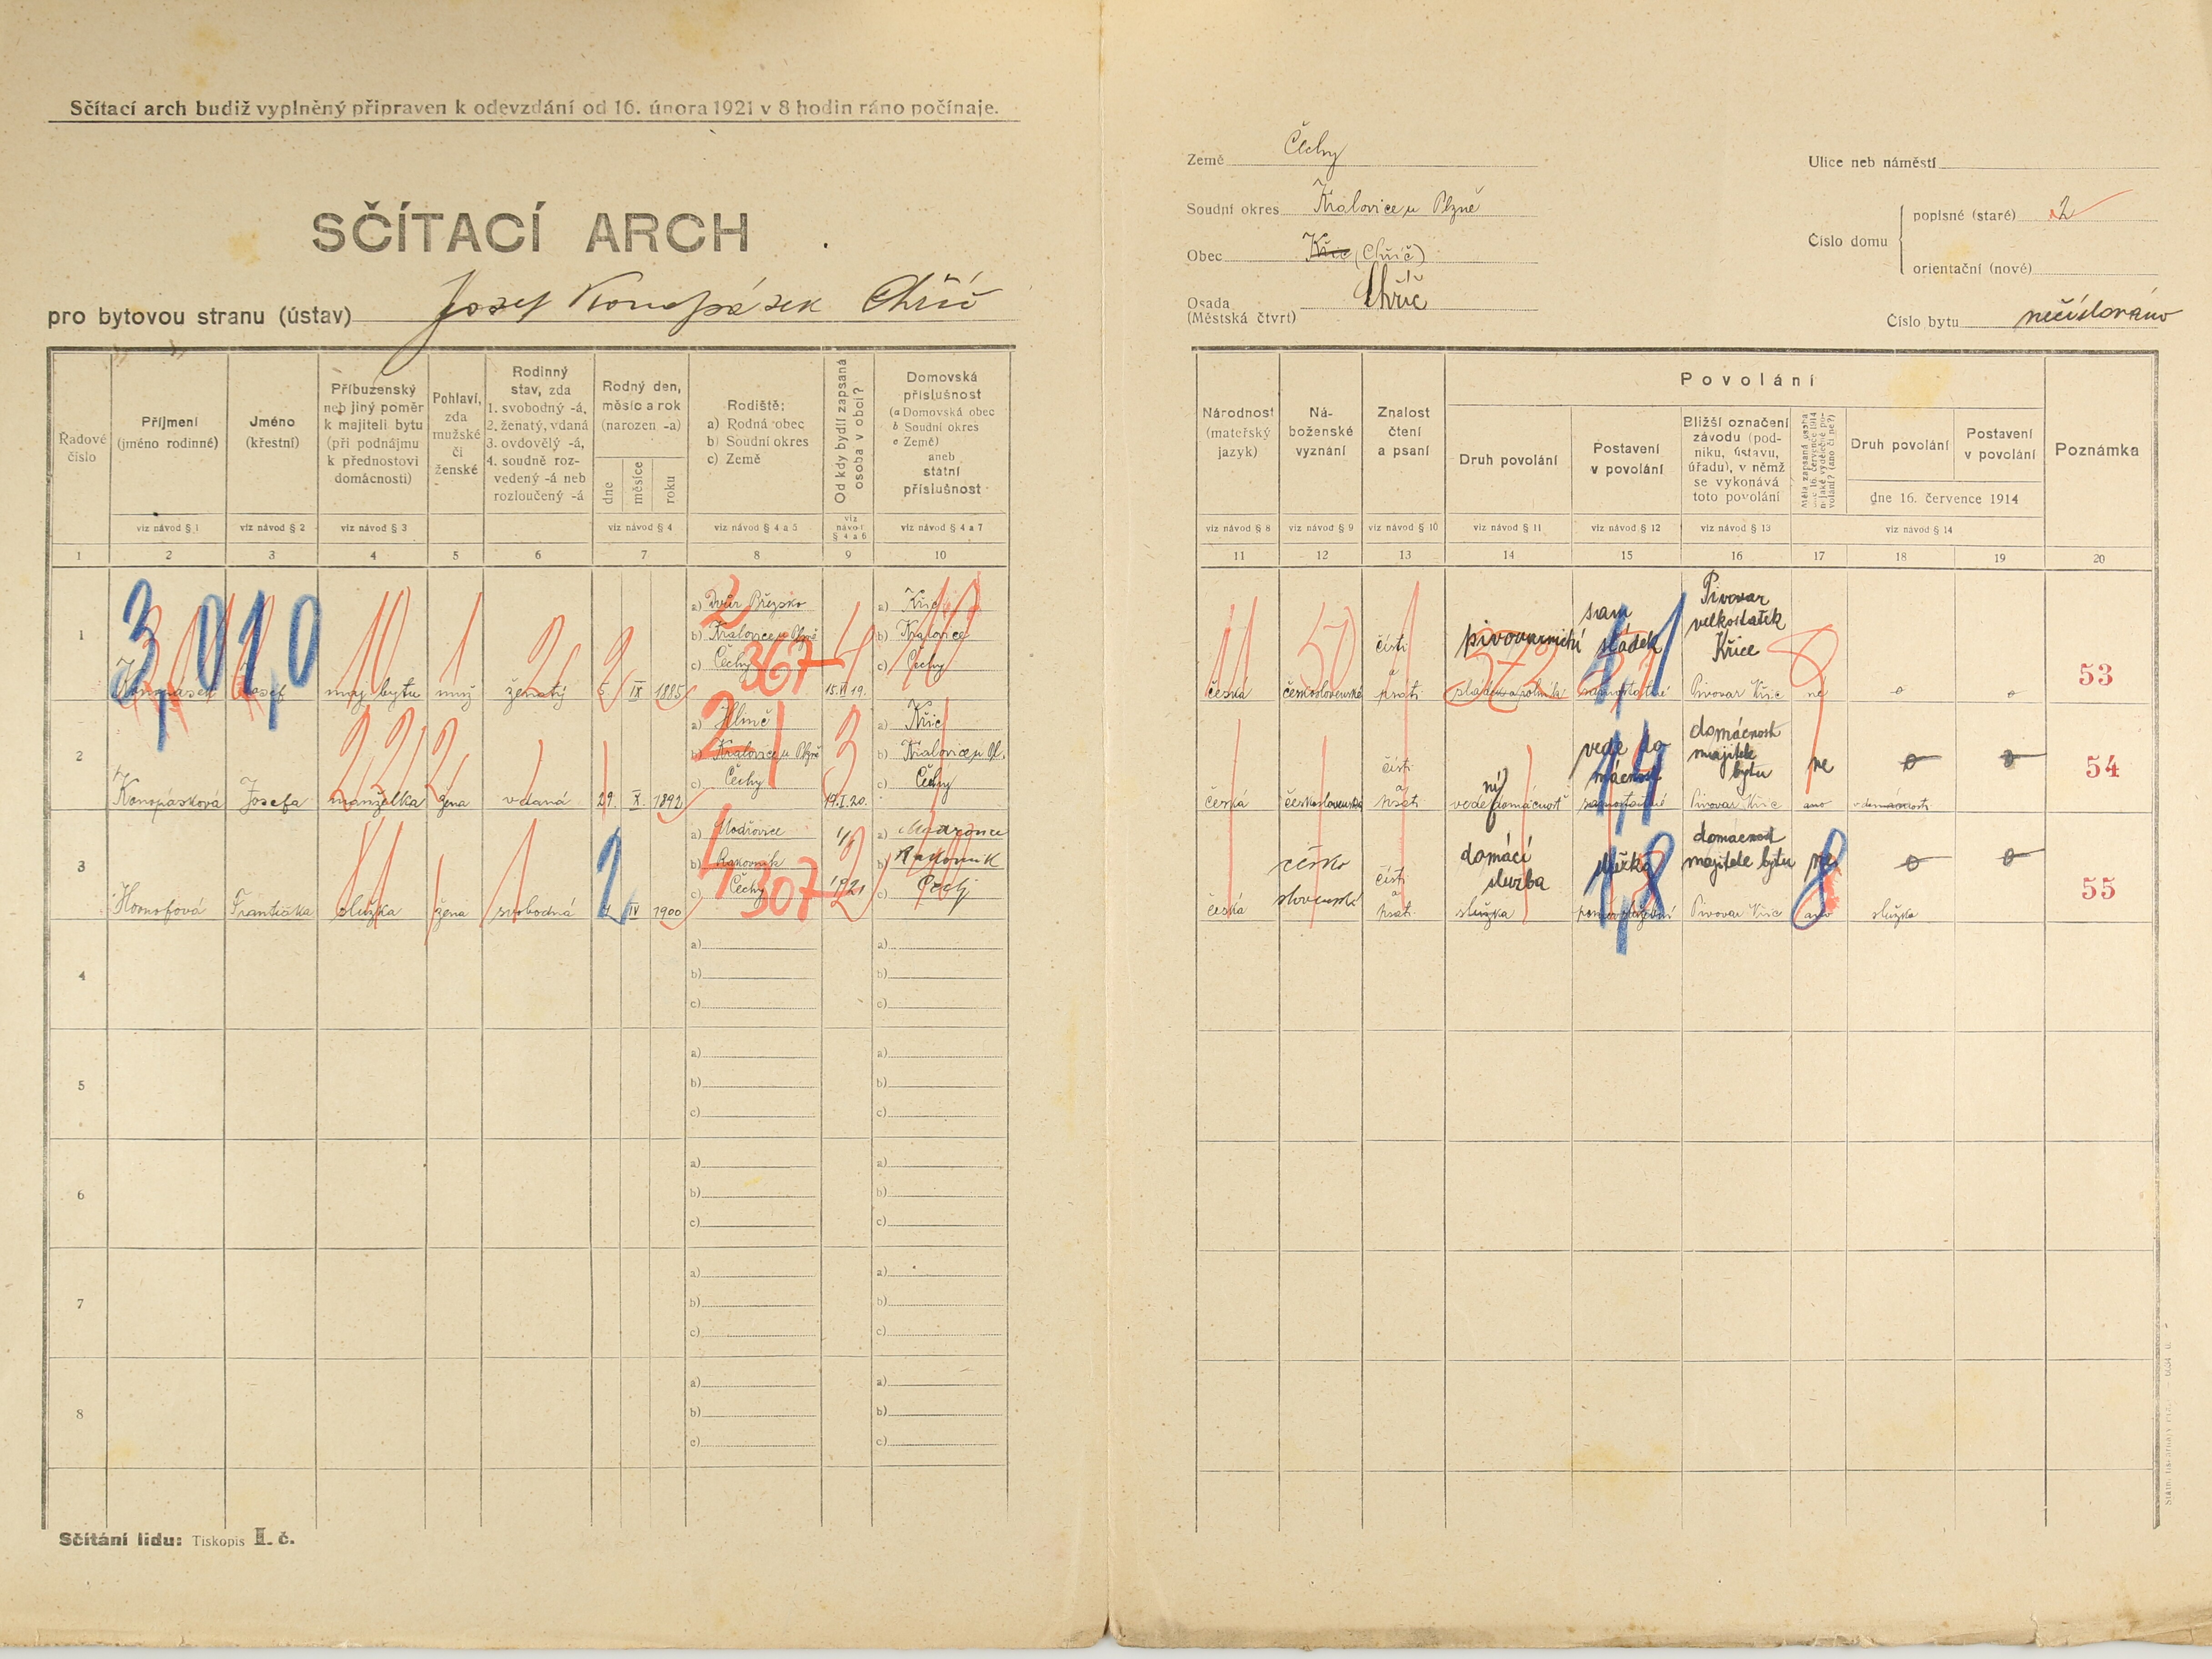 Sčítací arch budiž vyplněný připraven k odevzdání od 16. února 1921 v 8 hodin ráno počínaje.
SČÍTACÍ ARCH
pro bytovou stranu (ústav) Josef Konopásek Chříč
Země Čechy
Soudní okres Kralovice u Plzně
Obec Křic (Chříč)
Osada
(Městská čtvrt) Chříč
Ulice neb náměstí
Číslo domu
popisné (staré) 2
orientační (nové)
Číslo bytu nečíslováno
Řadové číslo
Příjmení (jméno rodinné)
Jméno (křestní)
Příbuzenský neb jiný poměr k majiteli bytu (při podnájmu k přednostovi domácnosti)
Pohlaví, zda mužské či ženské
Rodinný stav, zda 1. svobodný -á, 2. ženatý, vdaná 3. ovdovělý -á, 4. soudně rozvedený -á neb rozloučený -á
Rodný den, měsíc a rok (narozen -a)
dne
měsíce
roku
Rodiště:
a) Rodná obec
b) Soudní okres
c) Země
Od kdy bydlí zapsaná osoba v obci?
Domovská příslušnost
(a Domovská obec
b Soudní okres
c Země)
aneb
státní příslušnost
viz návod § 1
viz návod § 2
viz návod § 3
viz návod § 4
viz návod § 4 a 5
viz návod § 4 a 6
viz návod § 4 a 7
1 2 3 4 5 6 7 8 9 10
Národnost (mateřský jazyk)
Náboženské vyznání
Znalost čtení a psaní
Povolání
Druh povolání
Postavení v povolání
Bližší označení závodu (podniku, ústavu, úřadu), v němž se vykonává toto povolání
Měla zapsaná osoba dne 16. července 1914 nějaké výdělečné povolání? (ano či ne?)
Druh povolání
Postavení v povolání
dne 16. července 1914
Poznámka
viz návod § 8
viz návod § 9
viz návod § 10
viz návod § 11
viz návod § 12
viz návod § 13
viz návod § 14
11 12 13 14 15 16 17 18 19 20
1
3,0 1,0
Konopásek Josef maj. bytu muž ženatý 5 IX 1885
a) Dvůr Březsko
b) Kralovice u Plzně
c) Čechy
367
15.VI 19.
a) Křic
b) Kralovice
c) Čechy
česká československé
čísti
a
psati
pivovarnictví
572
samostatné
sam
sládek
1,1
Pivovar
velkostatek
Křice
Pivovar Křic
ne
o
o
53
2
Konopásková Josefa manželka žena vdaná 29. X. 1892
a) Hlince
b) Kralovice u Plzně
c) Čechy
19.I.20.
a) Křic
b) Kralovice u Pl.
c) Čechy
česká československá
čísti
a
psati
vede domácnost
vede do
mácnost
1,4
samostatné
domácnost
majitele
bytu
Pivovar Křic
ne
ano
v domácnosti
o
o
54
3
Františka služka žena svobodná 4 IV 1900
a)
b) Rakovník
c) Čechy
307
1/
2
1921
a)
b) Rakovník
c) Čechy
česká
česko
slovenské
čísti
a
psati
domácí
služba
služka
služka
1,8
domácnost
majitele bytu
Pivovar Křic
ne
8
ano
služka
o
o
55
4
a)
b)
c)
a)
b)
c)
5
a)
b)
c)
a)
b)
c)
6
a)
b)
c)
a)
b)
c)
7
a)
b)
c)
a)
b)
c)
8
a)
b)
c)
a)
b)
c)
Sčítání lidu: Tiskopis II. č.